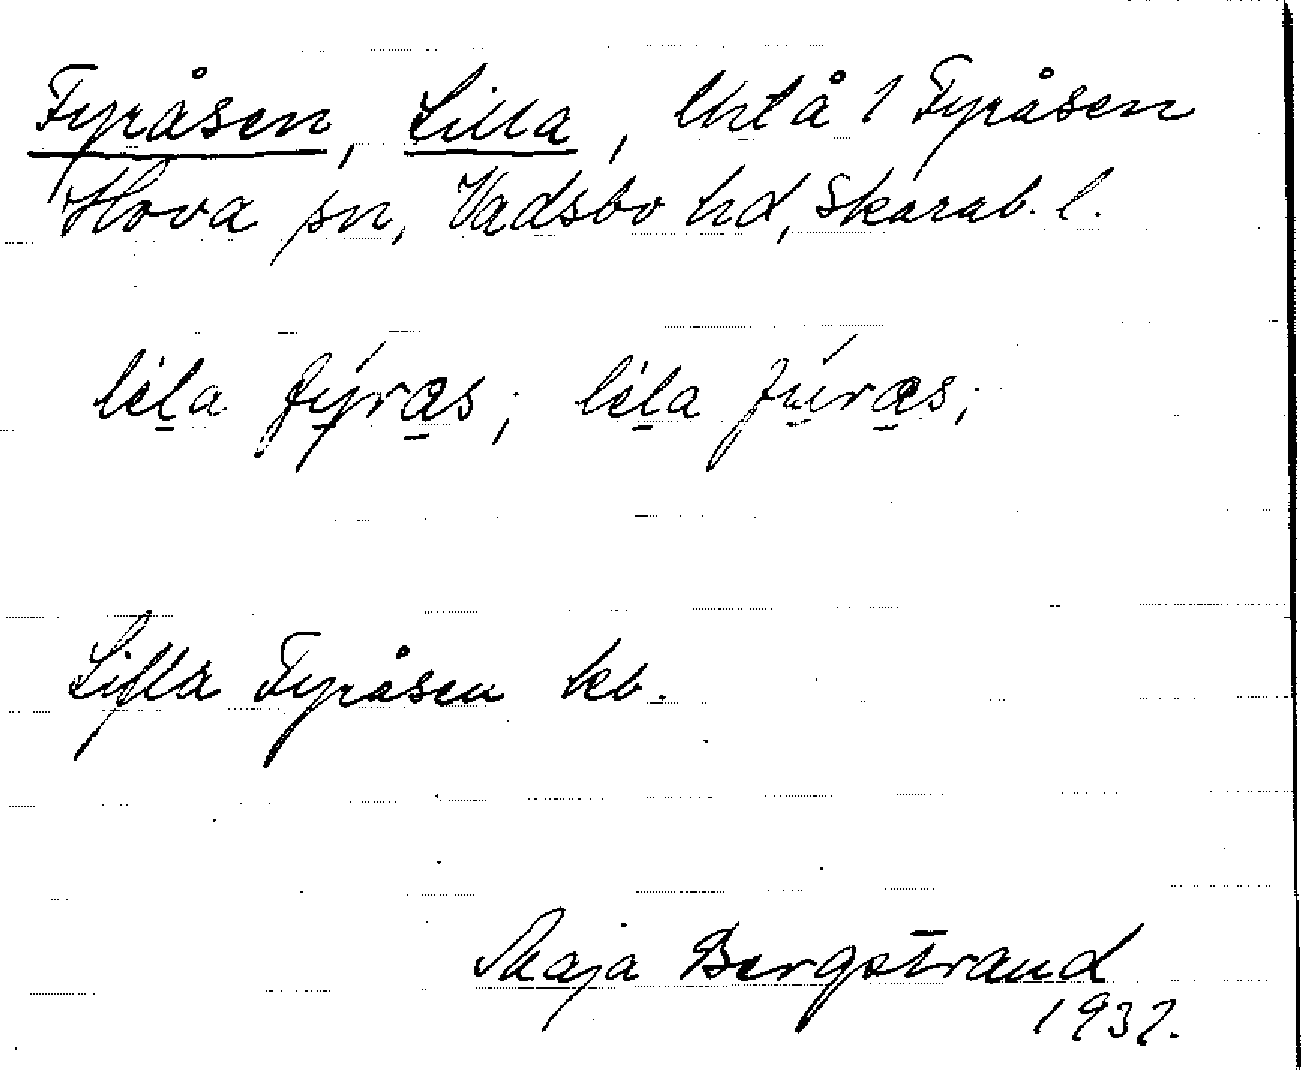 Fyråsen, Lilla, lht å 1 Fyråsen
Hova sn, Vadsbo hd, Skarab. l.
lila fyras; lila furas;
Lilla Fyråsen kb.
Maja Bergstrand
1937.